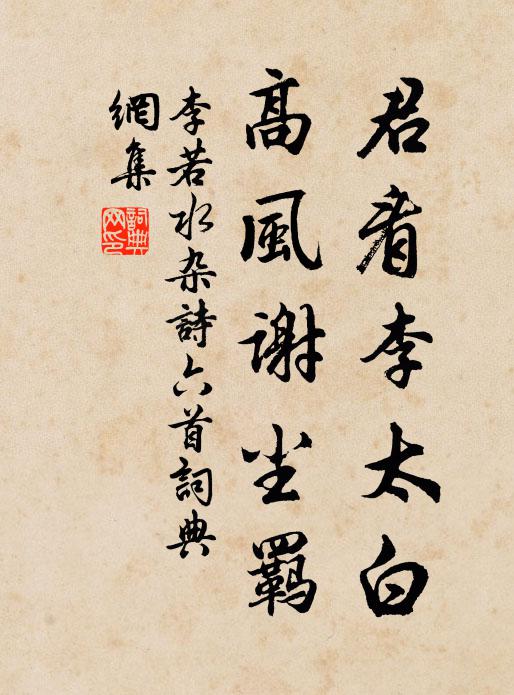 君看李太白
高風謝尘羈
李若水杂詩六首詞典
網集
詞典
网印